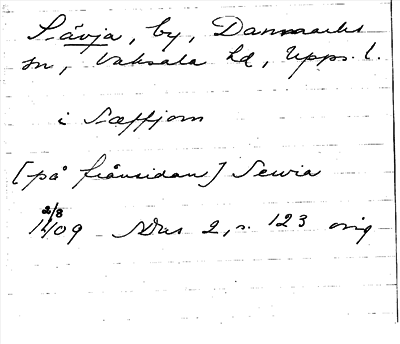 Sävja, by, Danmarks
sn, Vaksala hd, Upps. l.
i Sæffjom
[på frånsidan] Sewia
2/8
1409 Dus 2, s. 123 orig